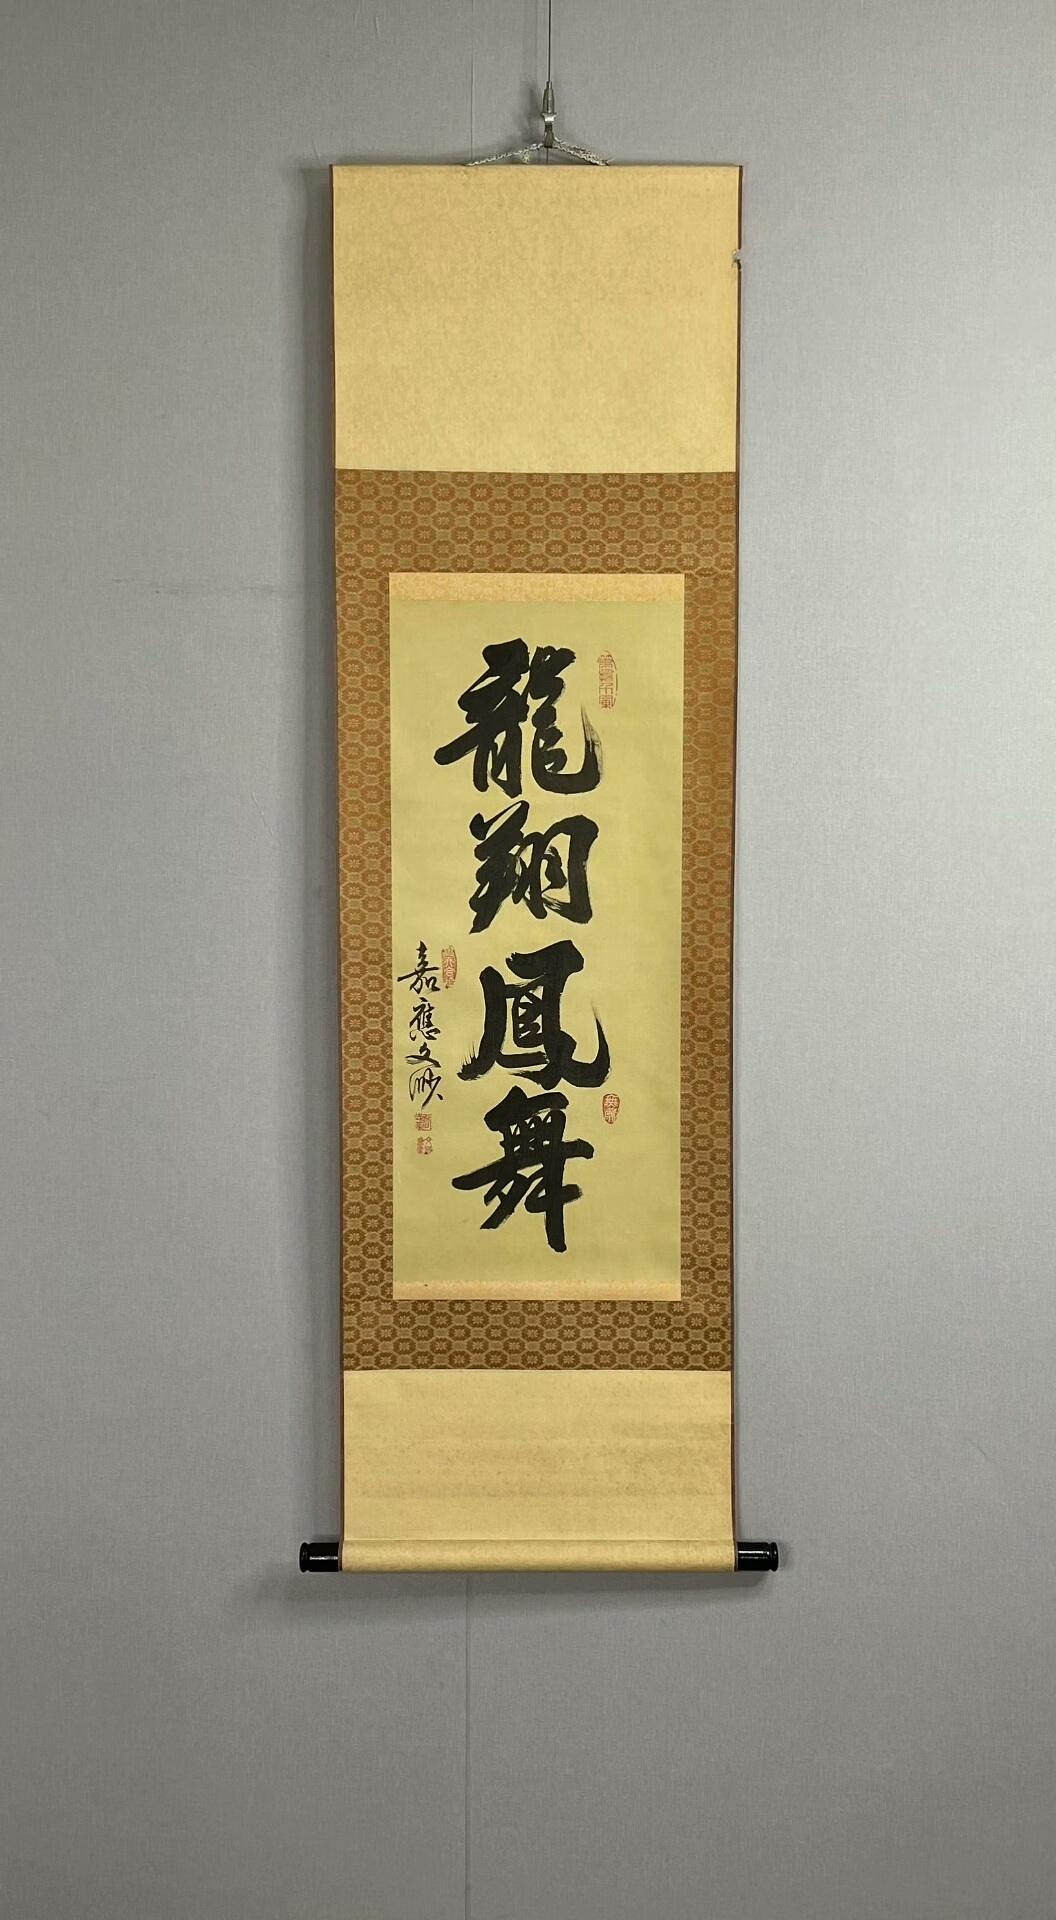 龍翔鳳舞
嘉應文